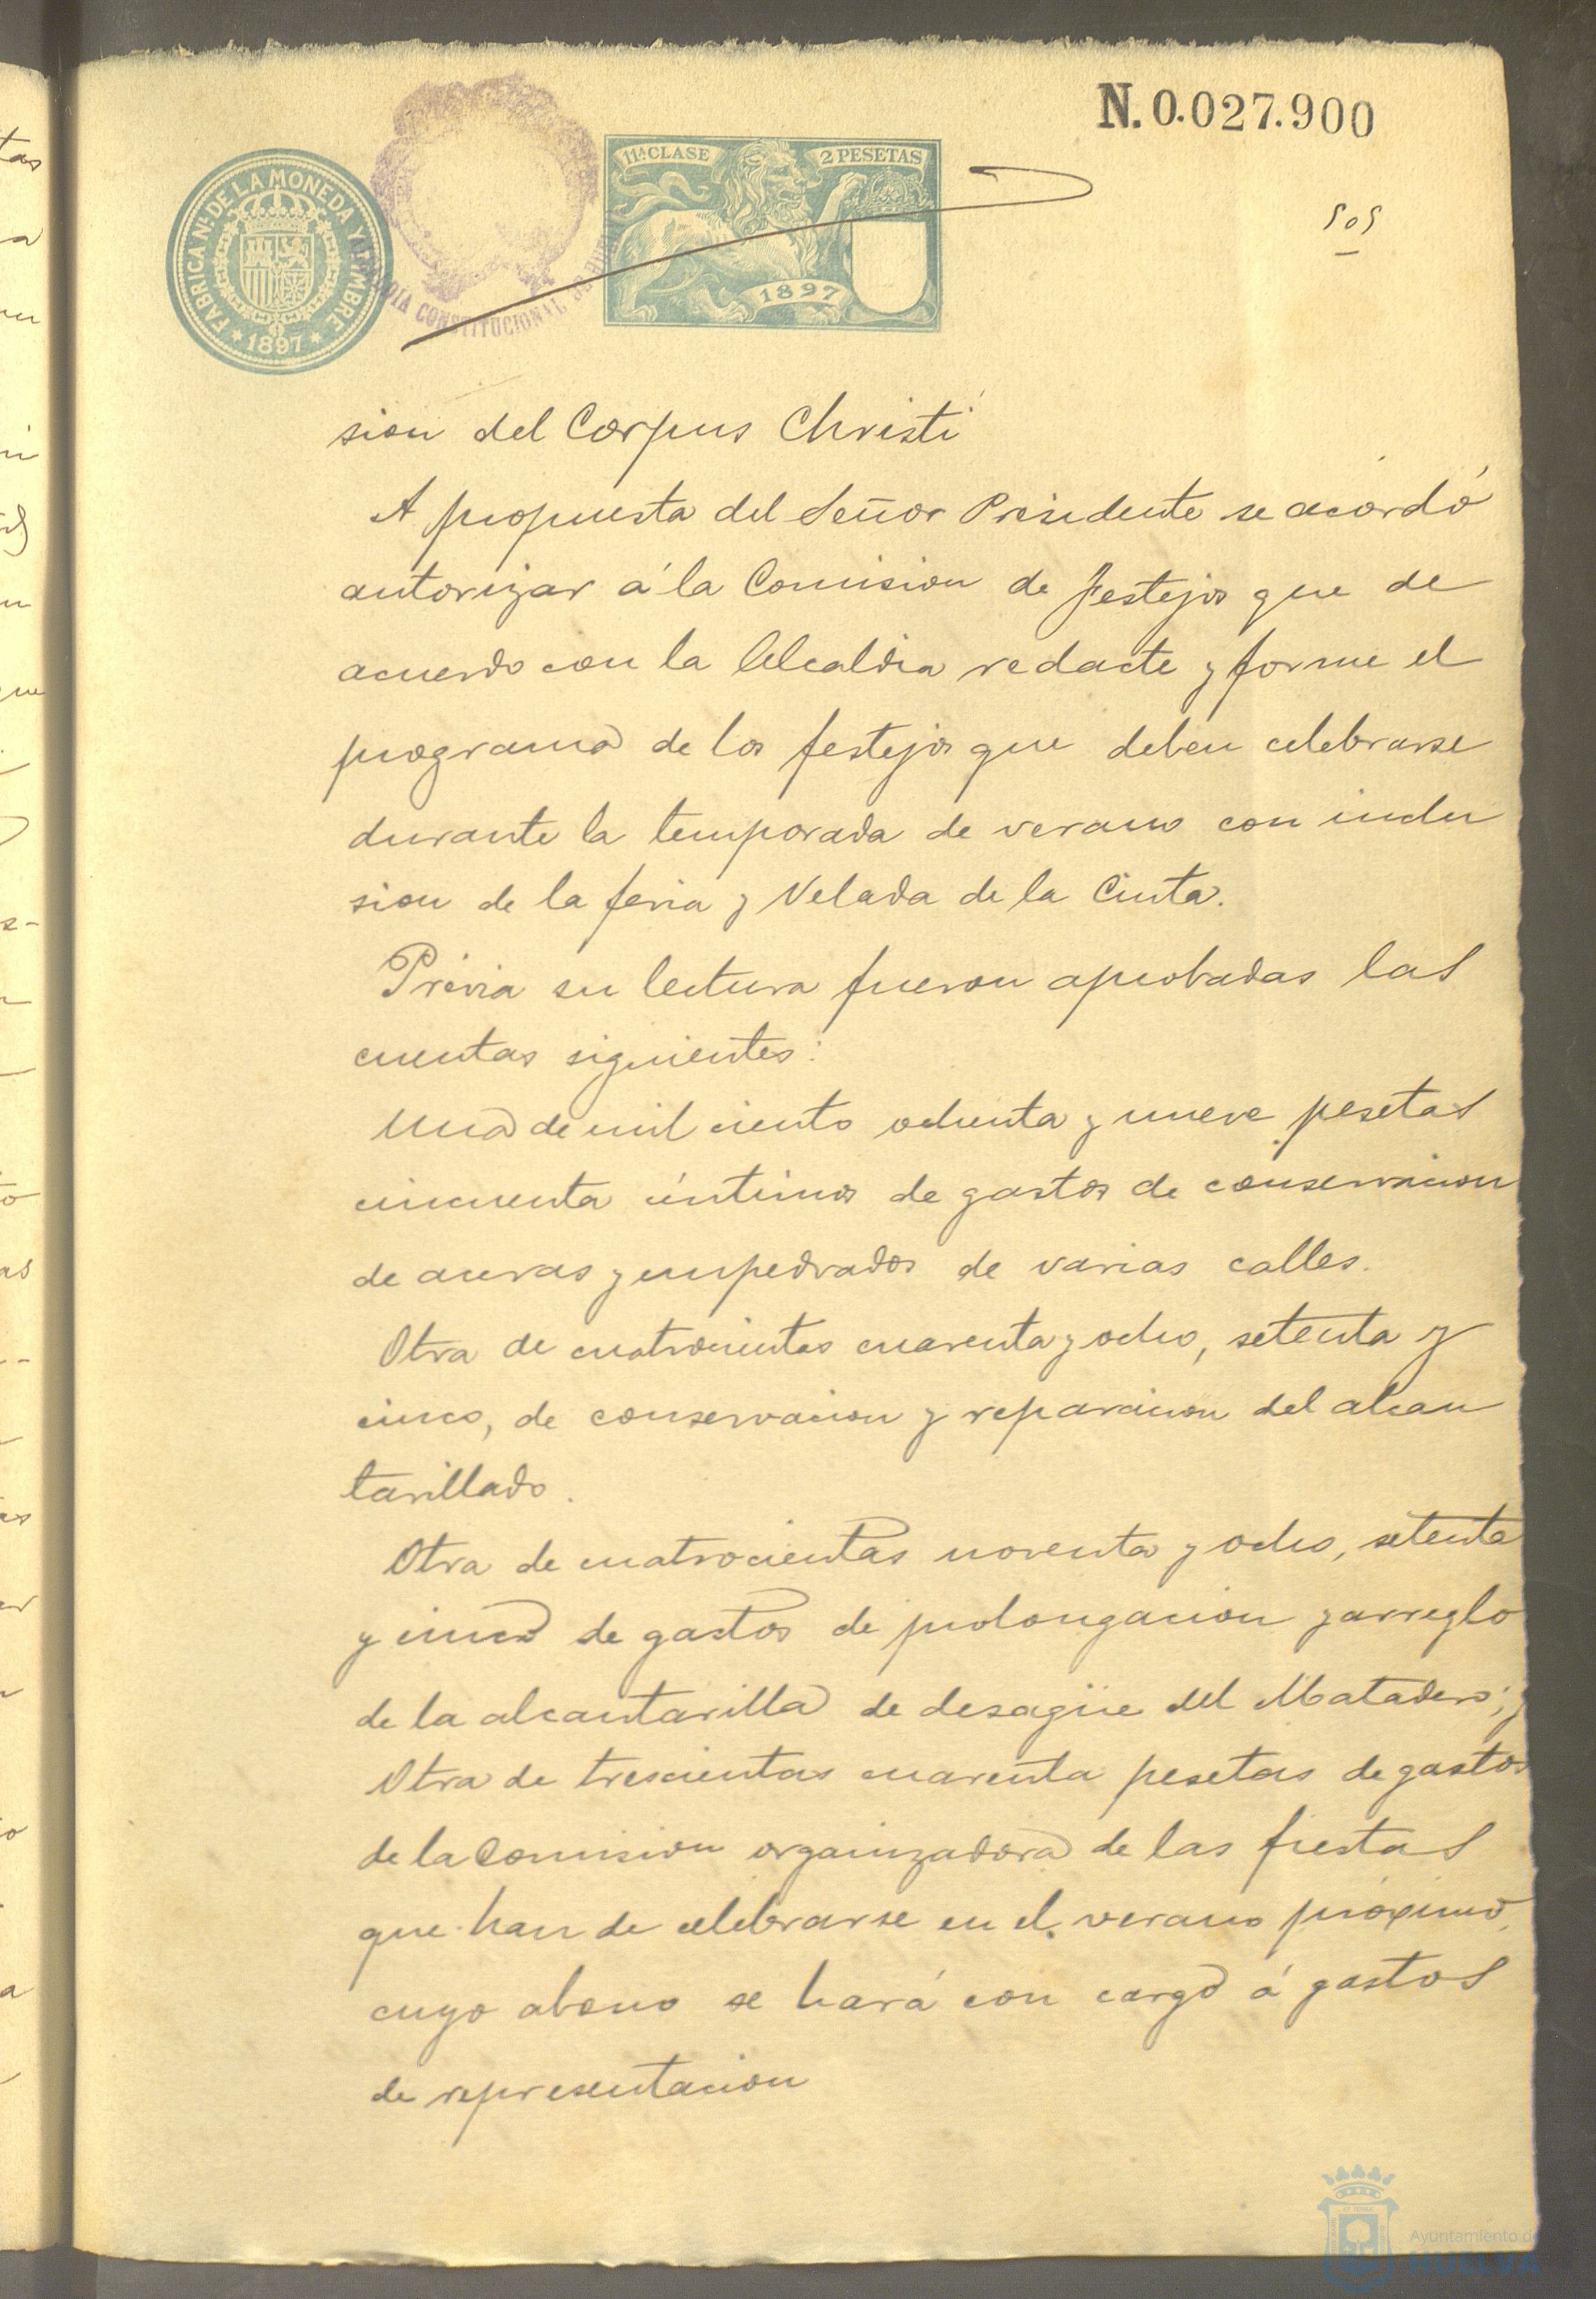 N. 0.027.900
11ª CLASE 2 PESETAS
FABRICA NL. DE LA MONEDA Y TIMBRE
505
1897
CONSTITUCIONAL DE
* 1897 *
sion del Corpus Christi
A propuesta del Señor Presidente se acordó
autorizar á la Comision de festejos que de
acuerdo con la Alcaldia redacte y forme el
programa de los festejos que deben celebrarse
durante la temporada de verano con inclu
sion de la feria y Velada de la Cinta.
Prévia su lectura fueron aprobadas las
cuentas siguientes:
Una de mil ciento ochenta y nueve pesetas
cincuenta céntimos de gastos de conservacion
de aceras y empedrados de varias calles.
Otra de cuatrocientas cuarenta y ocho, setenta y
cinco, de conservacion y reparacion del alcan
tarillado.
Otra de cuatrocientas noventa y ocho, setenta
y cinco de gastos de prolongacion y arreglo
de la alcantarilla de desagüe del Matadero; y
Otra de trescientas cuarenta pesetas de gastos
de la Comision organizadora de las fiestas
que han de celebrarse en el verano próximo,
cuyo abono se hará con cargo á gastos
de representacion
Ayuntamiento de
HUELVA